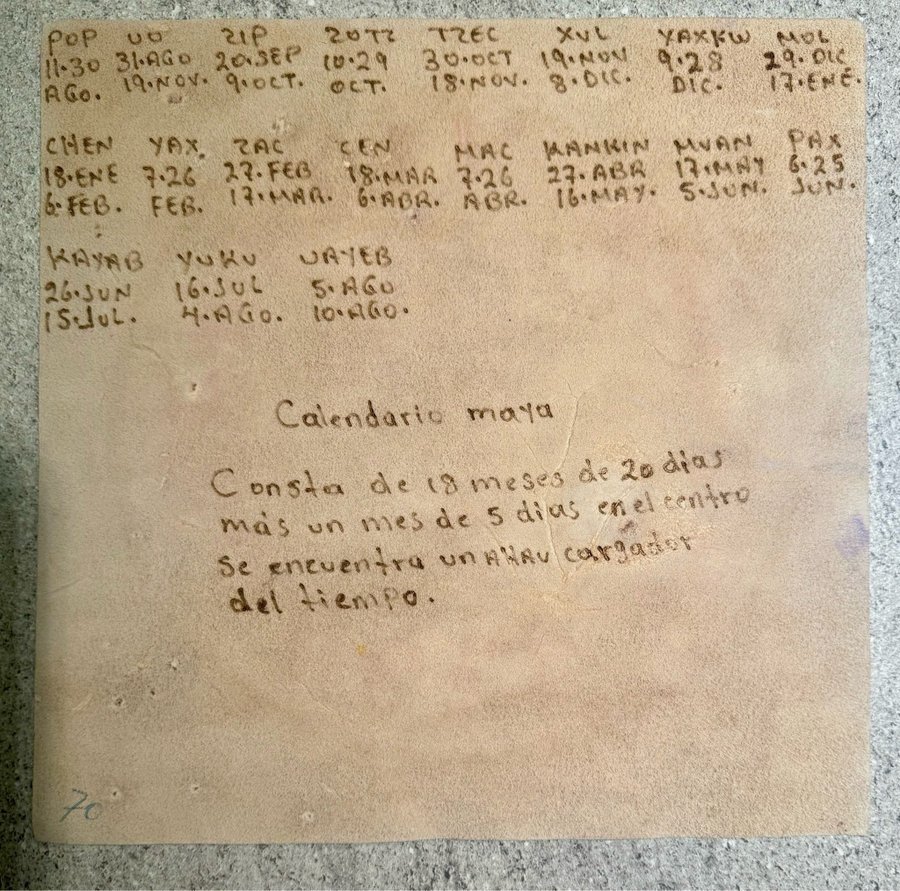 POP UO ZIP ZOTZ TZEC XUL YAXKW MOL
11·30 31·AGO 20·SEP 10·29 30·OCT 19·NOV 9·28 29·DIC
AGO. 19·NOV. 9·OCT. OCT. 18·NOV. 8·DIC. DIC. 17·ENE.
CHEN YAX ZAC CEN MAC KANKIN MUAN PAX
18·ENE 7·26 27·FEB 18·MAR 7·26 27·ABR 17·MAY 6·25
6·FEB. FEB. 17·MAR. 6·ABR. ABR. 16·MAY. 5·JUN. JUN.
KAYAB YUKU UAYEB
26·JUN 16·JUL 5·AGO
15·JUL. 4·AGO. 10·AGO.
Calendario maya
Consta de 18 meses de 20 dias
más un mes de 5 dias en el centro
se encuentra un AHAU cargador
del tiempo.
70